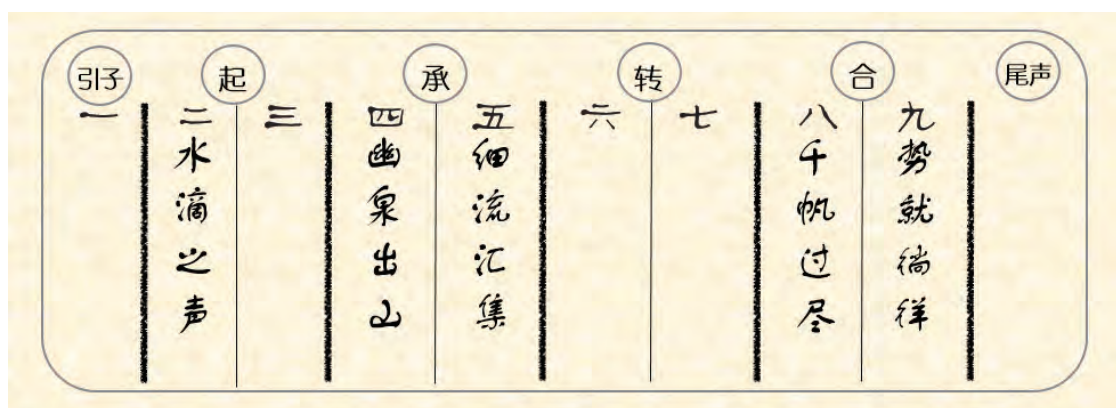 引子 起 承 转 合 尾声
一
二水滴之声
三
四幽泉出山
五细流汇集
六
七
八千帆过尽
九势就徜徉